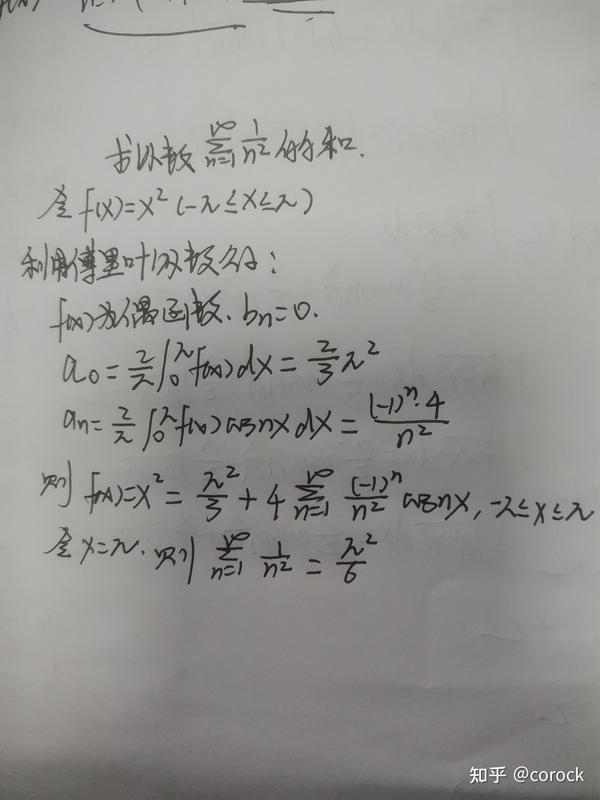 求级数 ∑_{n=1}^{∞} 1/n² 的和.
令 f(x)=x² (-π≤x≤π)
利用傅里叶级数有:
f(x)为偶函数. bₙ=0.
a₀ = 2/π ∫₀^π f(x)dx = 2/3 π²
aₙ = 2/π ∫₀^π f(x) cosnx dx = (-1)ⁿ·4/n²
则 f(x)=x² = π²/3 + 4 ∑_{n=1}^{∞} (-1)ⁿ/n² cosnx, -π≤x≤π
令 x=π. 则 ∑_{n=1}^{∞} 1/n² = π²/6
知乎 @corock